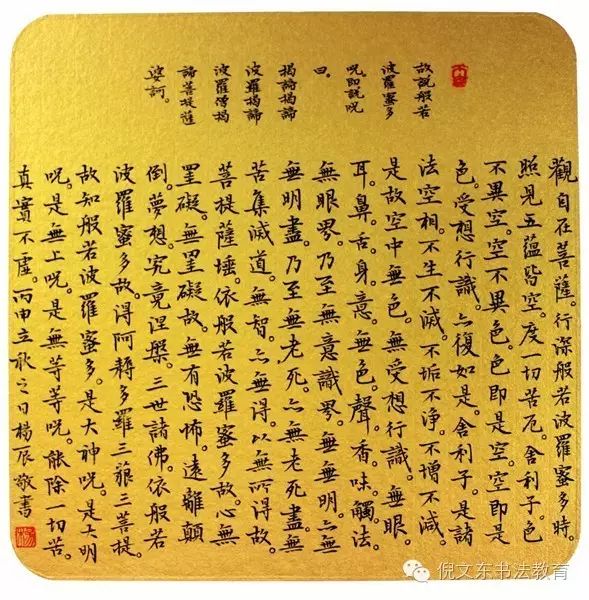 觀自在菩薩。行深般若波羅蜜多時。
照見五蘊皆空。度一切苦厄。舍利子。色
不異空。空不異色。色即是空。空即是
色。受想行識。亦復如是。舍利子。是諸
法空相。不生不滅。不垢不淨。不增不減。
是故空中無色。無受想行識。無眼
耳。鼻。舌。身。意。無色。聲。香味觸法。
無眼界。乃至無意識界。無無明。亦
無明盡。乃至無老死。亦無老死盡。無
苦集滅道。無智。亦無得。以無所得故。
菩提薩埵。依般若波羅蜜多故。心無
罣礙。無罣礙故。無有恐怖。遠離顛
倒。夢想。究竟涅槃。三世諸佛。依般若
波羅蜜多故。得阿耨多羅三藐三菩提。
故知般若波羅蜜多。是大神呪。是大明
呪。是無上呪。是無等等呪。能除一切苦。
真實不虛。丙申立秋之日楊辰敬書
故說般若
波羅蜜多
呪即說呪
曰。
揭諦揭諦
波羅揭諦
波羅僧揭
諦菩提薩
婆訶。
倪文东书法教育